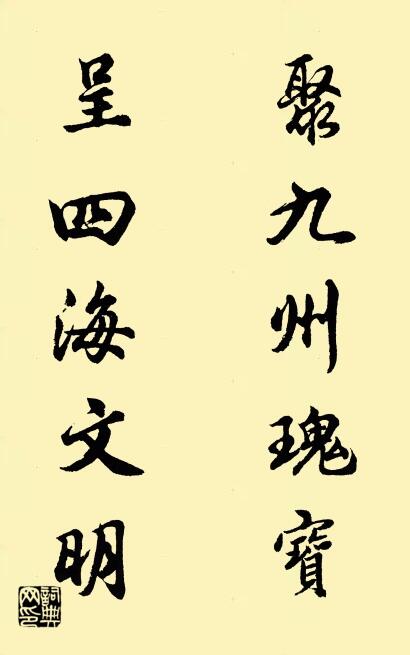 聚九州瑰寶
呈四海文明
詞典
网印